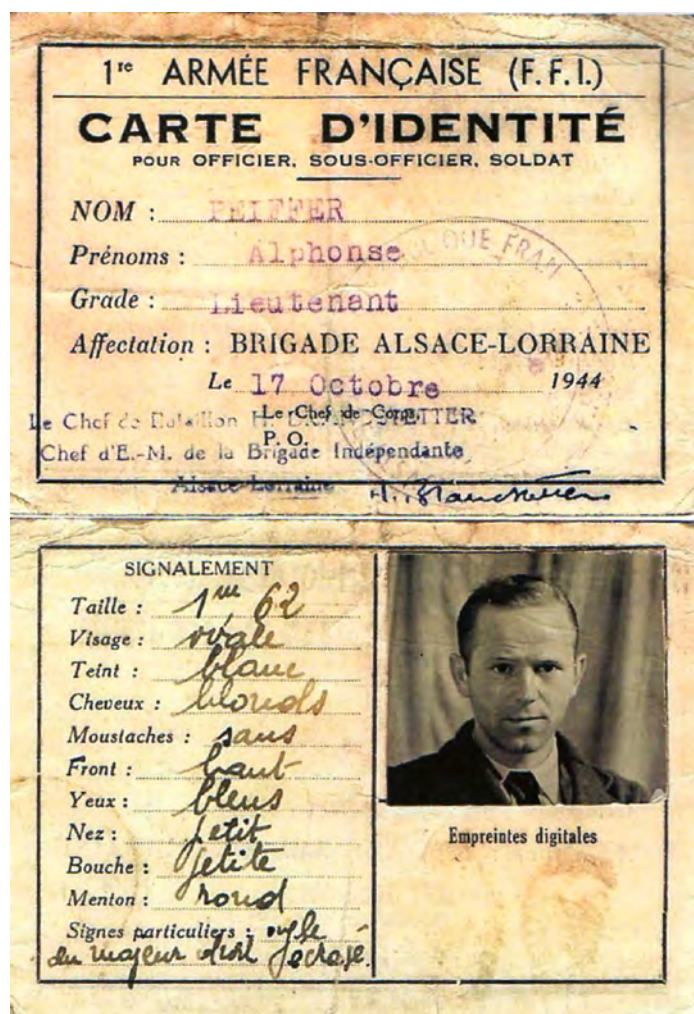 1re ARMÉE FRANÇAISE (F.F.I.)
CARTE D'IDENTITÉ
POUR OFFICIER, SOUS-OFFICIER, SOLDAT
NOM : PEIFFER
Prénoms : Alphonse
Grade : Lieutenant
Affectation : BRIGADE ALSACE-LORRAINE
Le 17 Octobre 1944
Le Chef de Corps,
Le Chef de Bataillon H.
P. O.
Chef d'E.-M. de la Brigade Indépendante
Alsace-Lorraine
SIGNALEMENT
Taille : 1m 62
Visage : ovale
Teint : blanc
Cheveux : blonds
Moustaches : sans
Front : haut
Yeux : bleus
Nez : petit
Bouche : petite
Menton : rond
Signes particuliers : ongle
du majeur droit écrasé.
Empreintes digitales